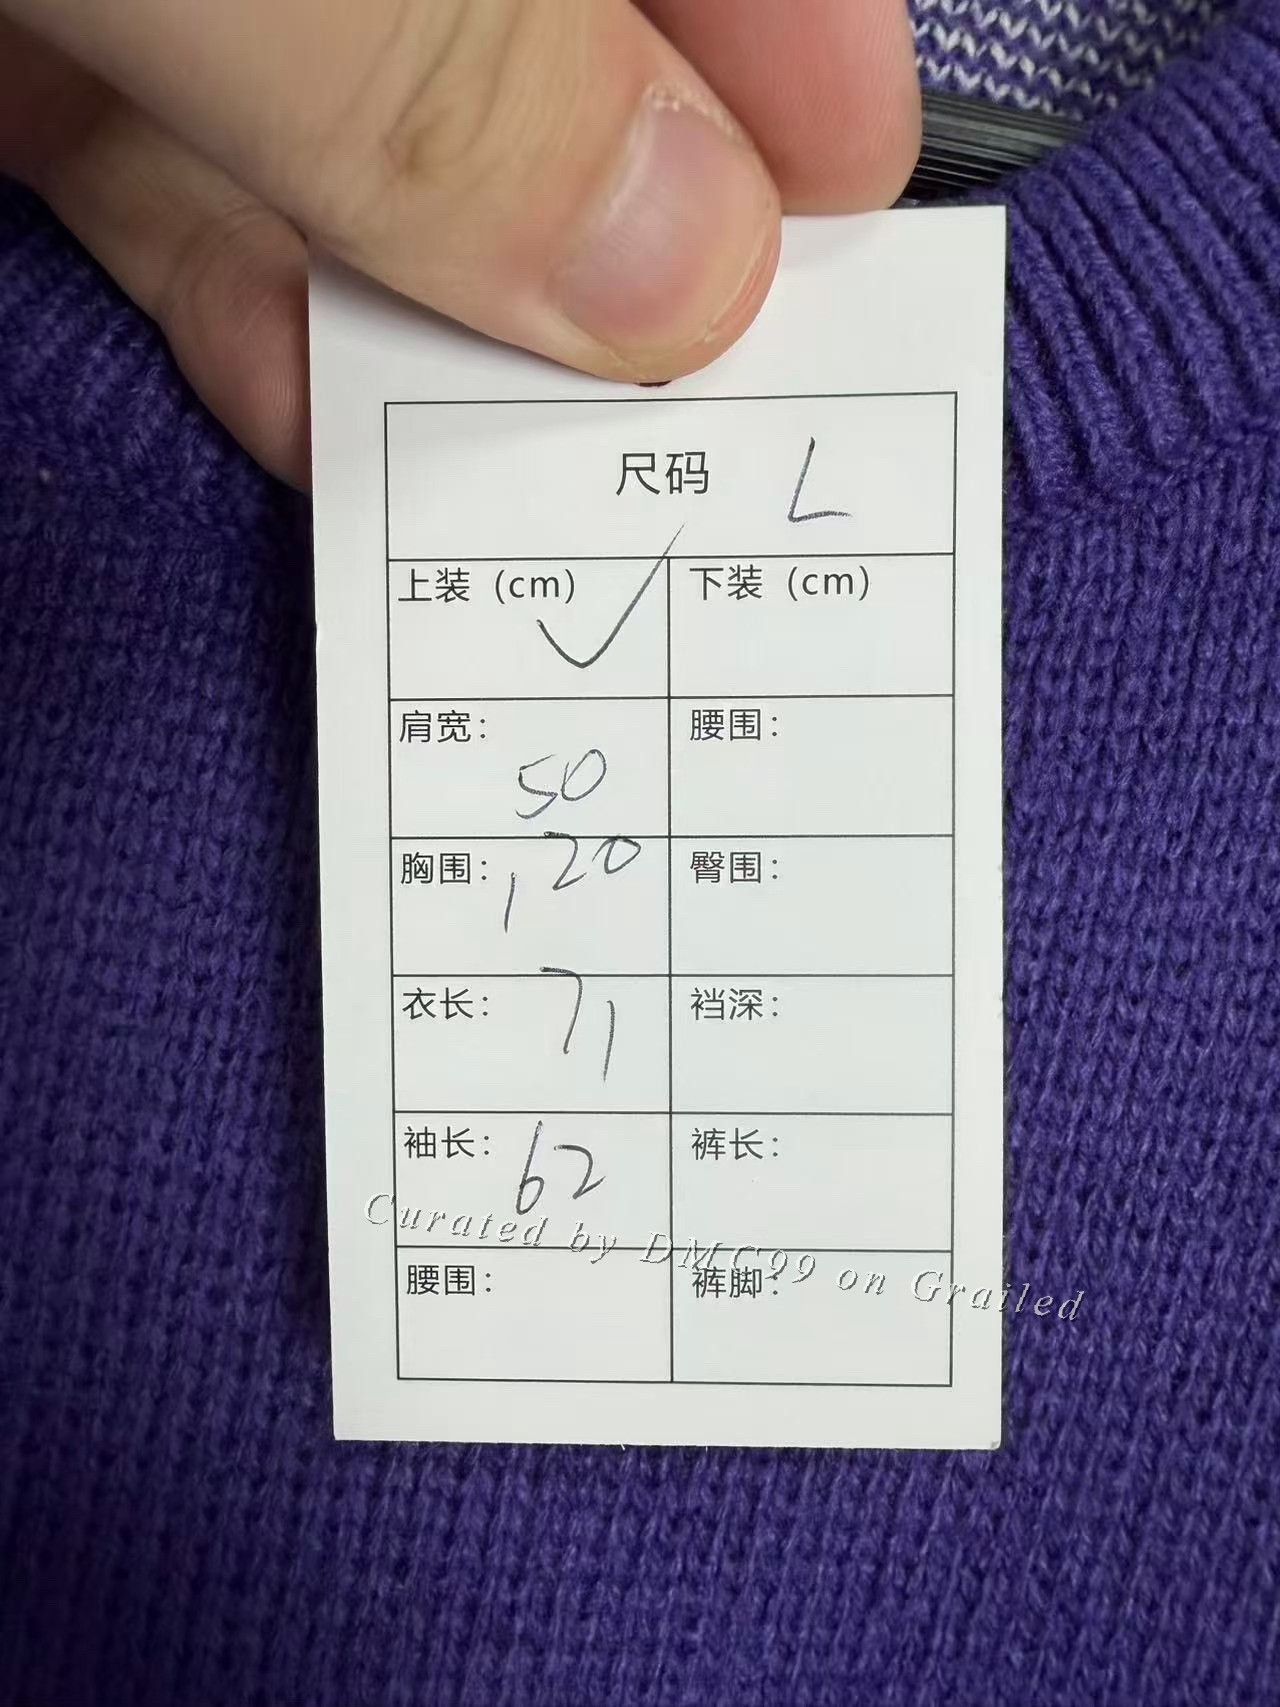 尺码 L
上装 (cm) ✓ 下装 (cm)
肩宽: 50 腰围:
胸围: 120 臀围:
衣长: 71 裆深:
袖长: 62 裤长:
腰围: 裤脚:
Curated by DMC99 on Grailed